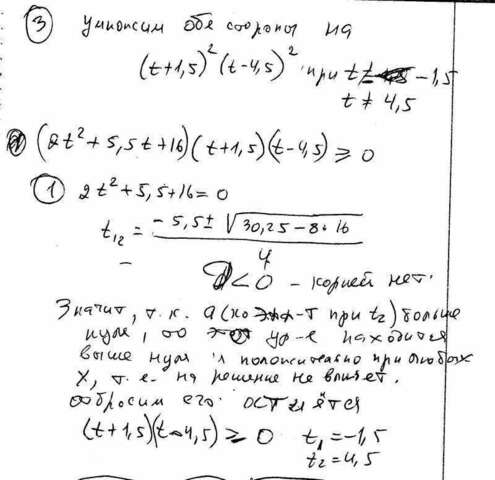 ③ Умножим обе стороны на
(t+1,5)² (t-4,5)² при t≠ -1,5
t ≠ 4,5
(2t²+5,5t+16)(t+1,5)(t-4,5) ≥ 0
① 2t²+5,5+16=0
t₁₂ = (-5,5 ± √(30,25-8·16)) / 4
D<0 - корней нет.
Значит, т.к. a (коэфф-т при t₂) больше
нуля, то ур-е находится
выше нуля и положительно при любых
x, т.е. на решение не влияет.
отбросим его. остаётся
(t+1,5)(t-4,5) ≥ 0 t₁ = -1,5
t₂ = 4,5